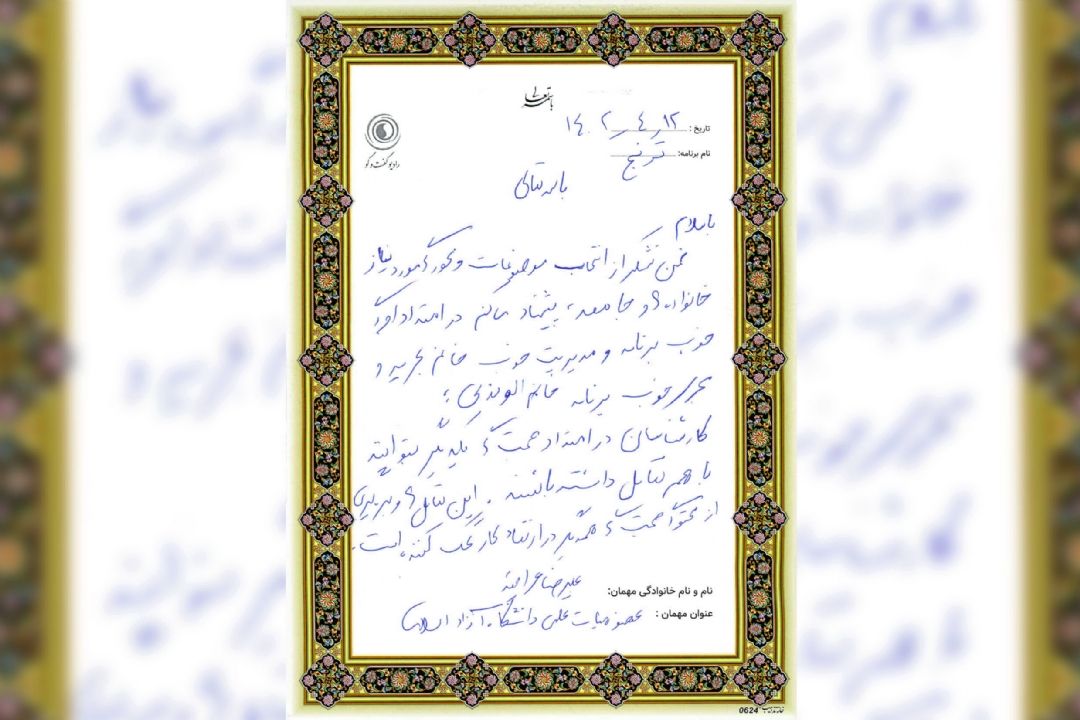 باسمه تعالی
تاریخ: ۱۴۰۲/۴/۱۲
نام برنامه: ترنج
رادیو گفت و گو
باسمه تعالی
باسلام
ضمن تشکر از انتخاب موضوعات و محورهای مورد نیاز
خانواده و جامعه، پیشنهاد سالم در امتداد اجرای
خوب برنامه و مدیریت خوب خانم بحریه و
خوب برنامه خانم الوندی؛
کارشناسان در امتداد صحبت های یکدیگر بتوانند
با هم تقابل داشته باشند. این تقابل و
از محتوا صحبت های همدیگر در ارتقاء کار کمک کننده است.
نام و نام خانوادگی مهمان: علیرضا
عنوان مهمان: عضو هیات علمی دانشگاه آزاد اسلامی
0624